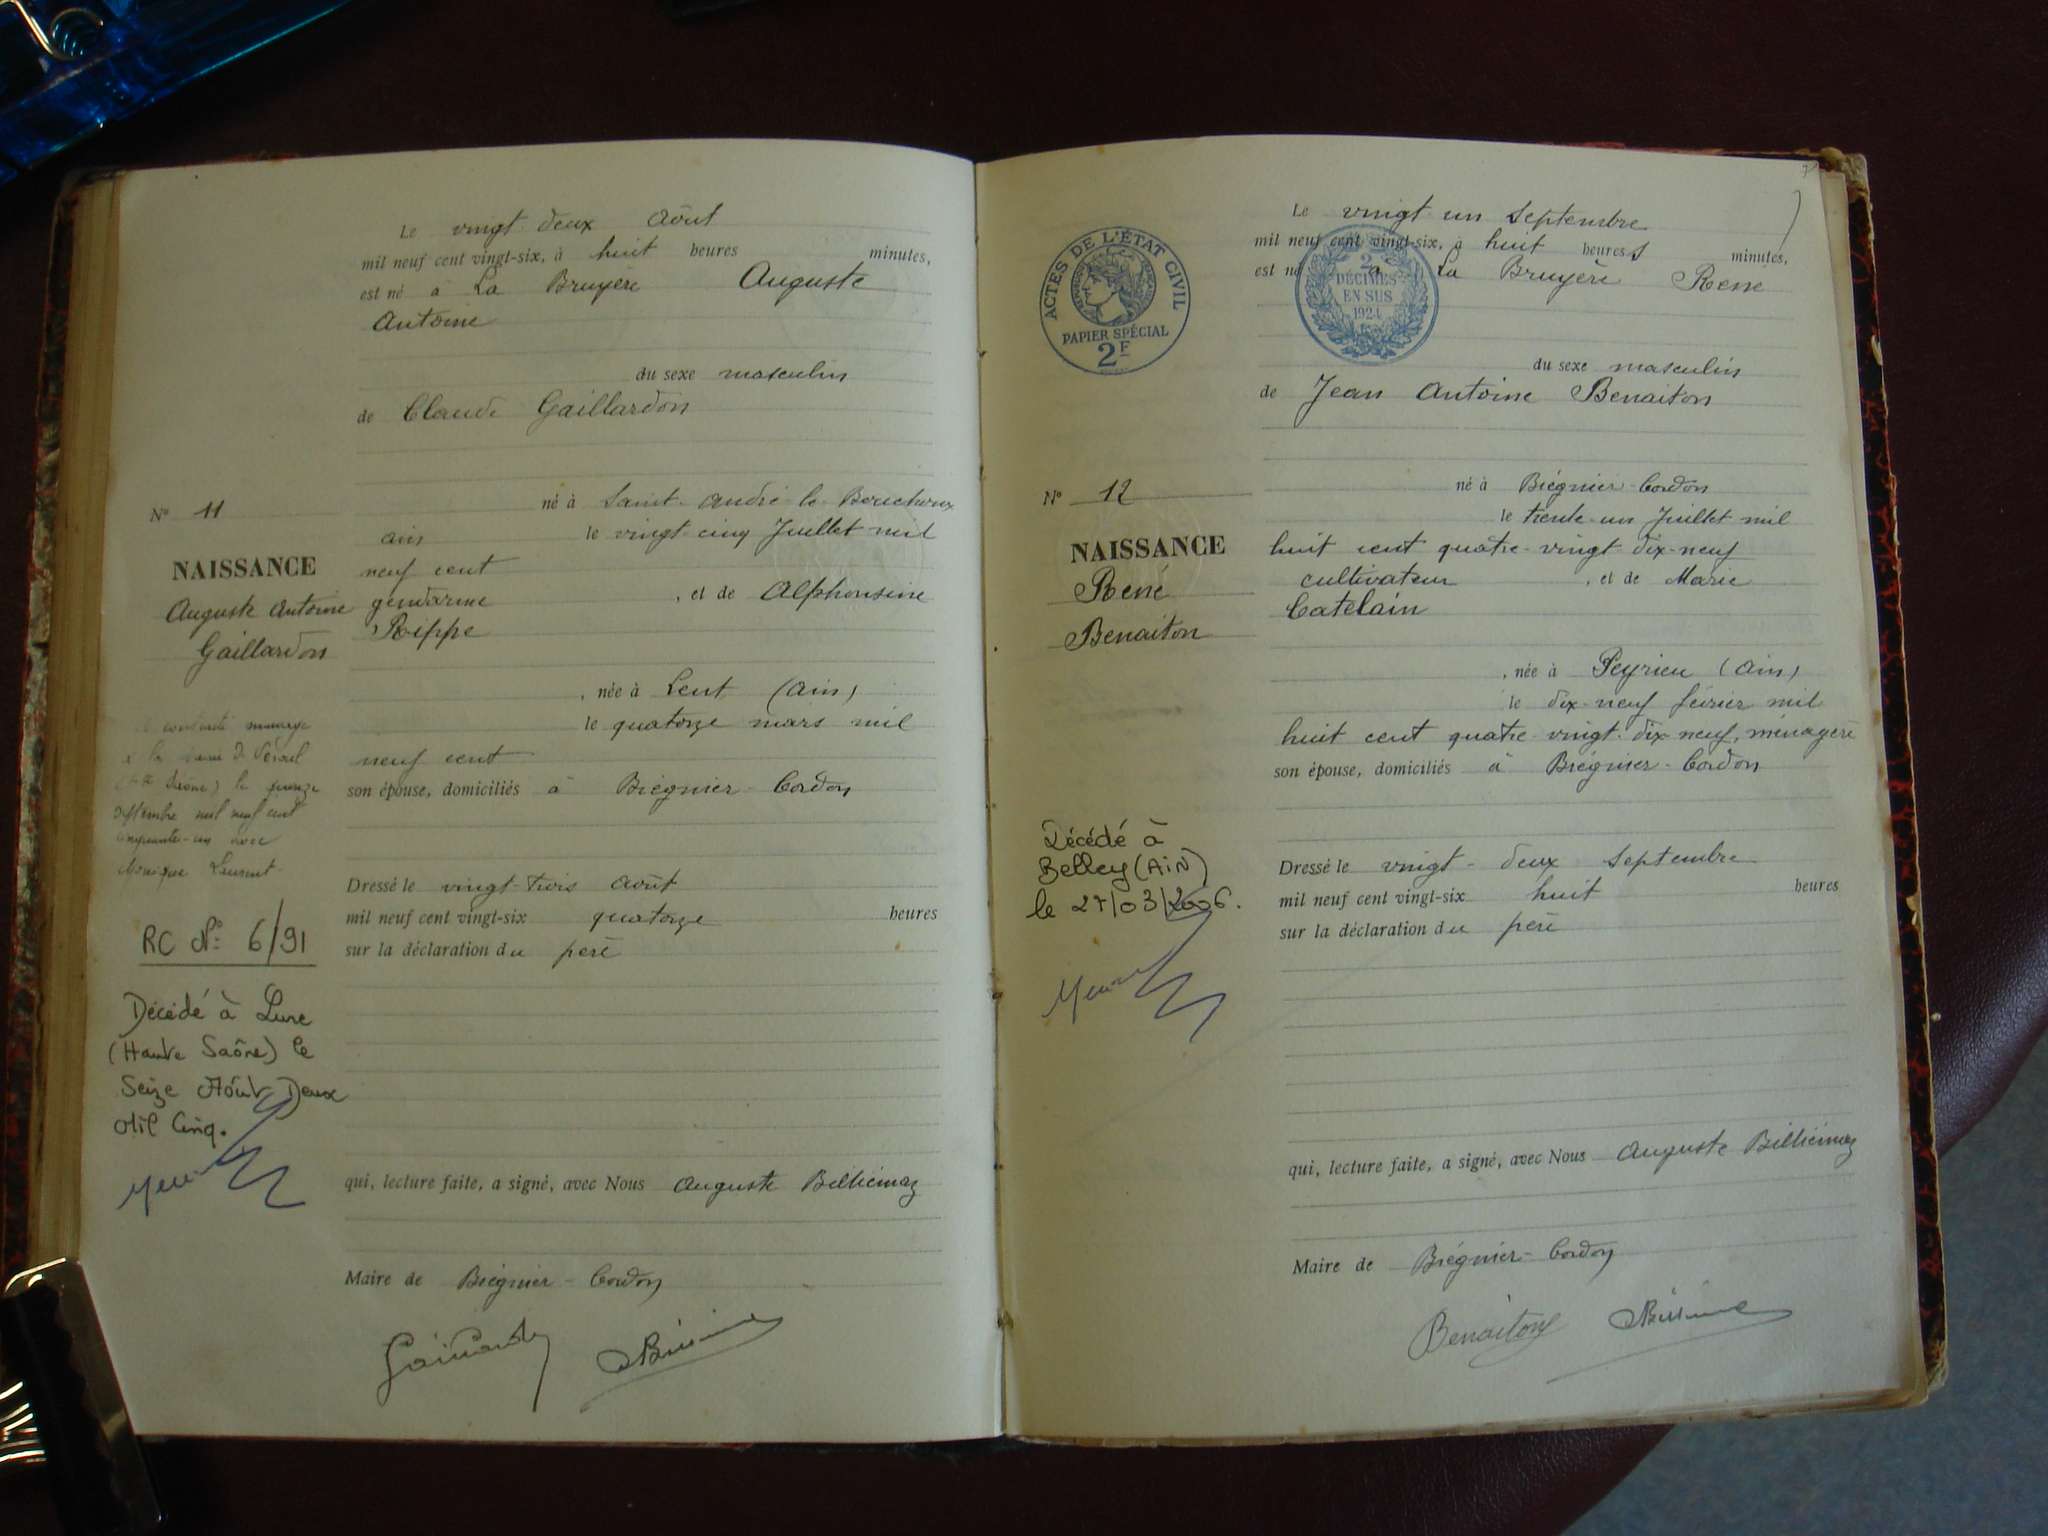 Le vingt deux Août
mil neuf cent vingt-six, à huit heures minutes,
est né à La Bruyère Auguste
Antoine
du sexe masculin
de Claude Gaillardon
né à Saint-André-le-Bouchoux
ain le vingt cinq Juillet mil
neuf cent
gendarme , et de Alphonsine
Rippe
, née à Lent (Ain)
le quatorze mars mil
neuf cent
son épouse, domiciliés à Brégnier-Cordon
Dressé le vingt-trois août
mil neuf cent vingt-six quatorze heures
sur la déclaration du père
qui, lecture faite, a signé, avec Nous Auguste Billiémaz
Maire de Brégnier-Cordon
N° 11
NAISSANCE
Auguste Antoine
Gaillardon
contracté mariage
à la mairie de Vesoul
(Hte Saône) le quinze
septembre mil neuf cent
cinquante-un avec
Monique Laurent
RC N° 6/91
Décédé à Lure
(Haute Saône) le
Seize Août Deux
Mil Cinq.
Le vingt un Septembre
mil neuf cent vingt-six, à huit heures minutes,
est né à La Bruyère René
du sexe masculin
de Jean Antoine Benaiton
né à Brégnier-Cordon
le trente-un Juillet mil
huit cent quatre-vingt-dix-neuf
cultivateur , et de Marie
Catelain
, née à Peyrieu (Ain)
le dix-neuf février mil
huit cent quatre-vingt-dix-neuf, ménagère
son épouse, domiciliés à Brégnier-Cordon
Dressé le vingt-deux Septembre
mil neuf cent vingt-six huit heures
sur la déclaration du père
qui, lecture faite, a signé, avec Nous Auguste Billiémaz
Maire de Brégnier-Cordon
Benaiton
ACTES DE L'ÉTAT CIVIL
PAPIER SPÉCIAL
2F
2
DÉCIMES
EN SUS
1924
N° 12
NAISSANCE
René
Benaiton
Décédé à
Belley (Ain)
le 27/03/2006.